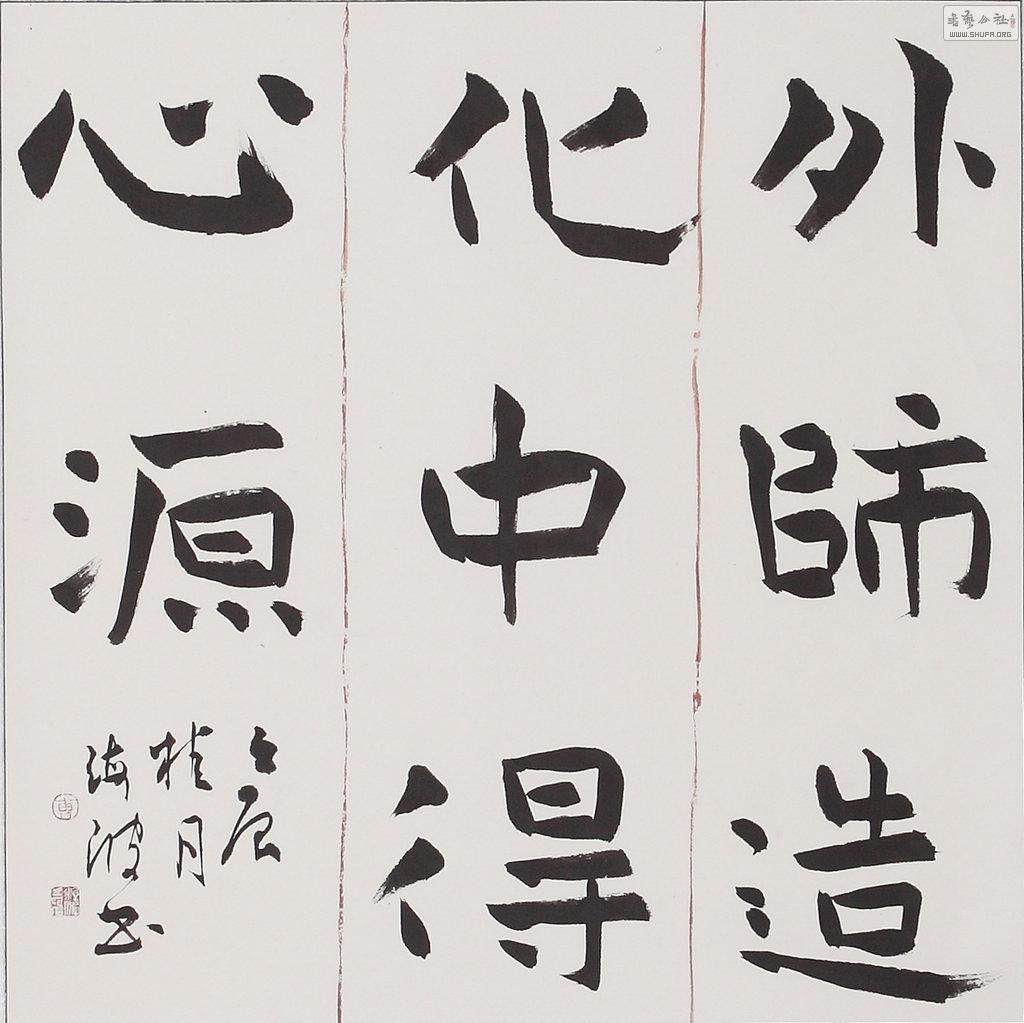 外師造
化中得
心源
壬辰
桂月
海波书
書藝公社
WWW.SHUFA.ORG